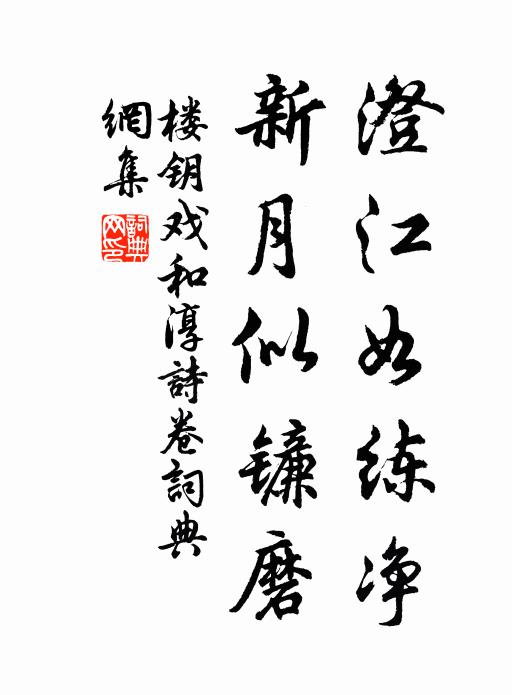 澄江如练净
新月似镰磨
楼钥戏和淳詩卷詞典
網集
詞典网印